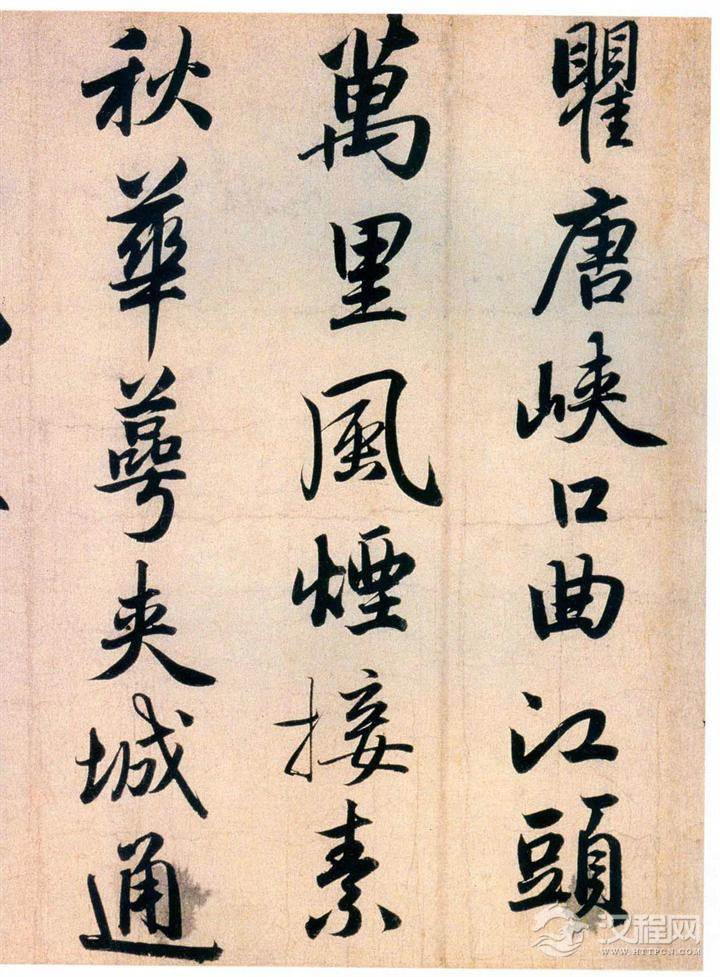 瞿唐峽口曲江頭
萬里風煙接素
秋華萼夾城通
汉程网
WWW.HTTPCN.COM